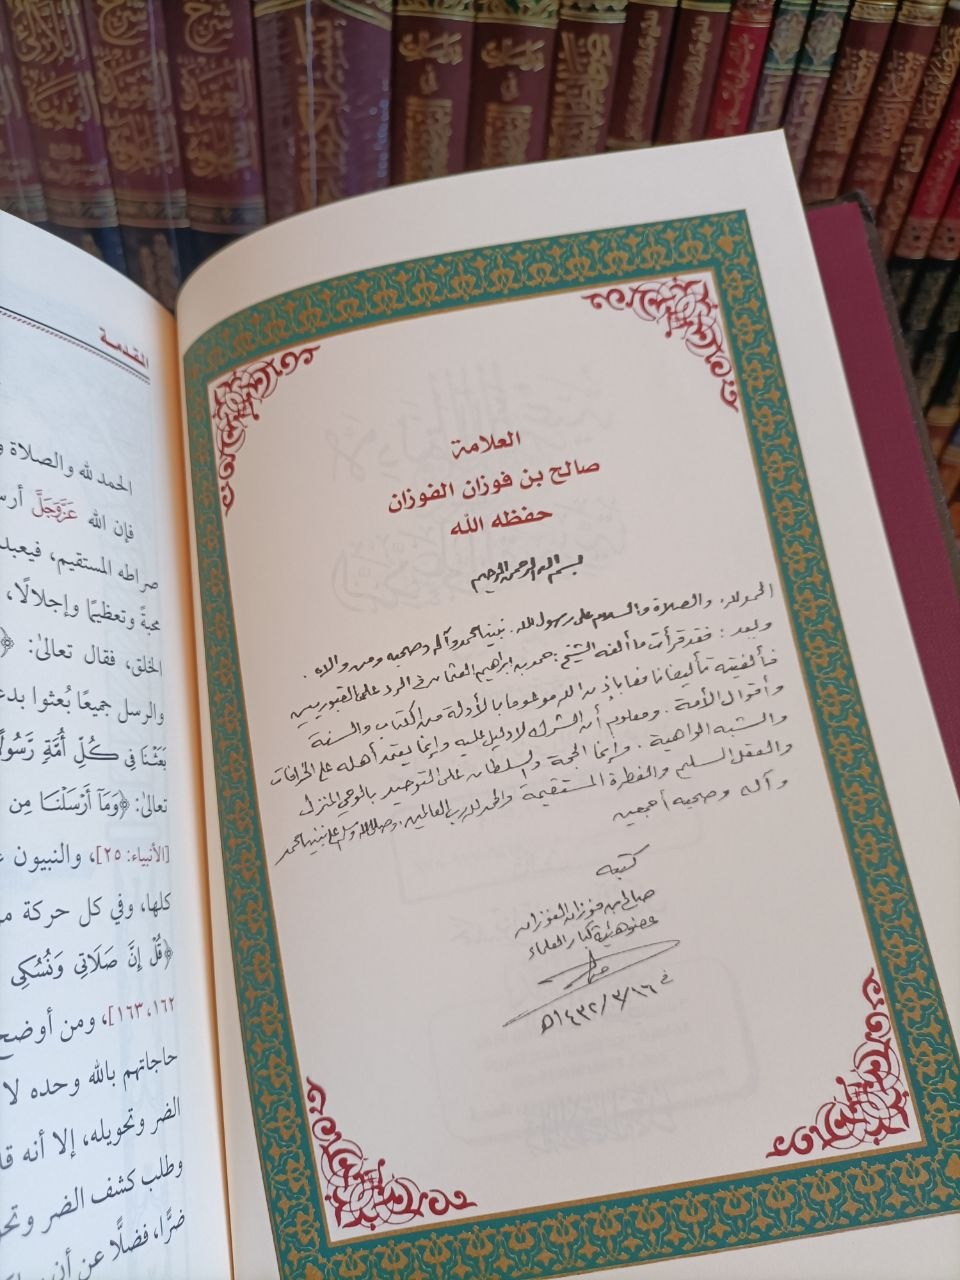 العلامة
صالح بن فوزان الفوزان
حفظه الله
بسم الله الرحمن الرحيم
الحمد لله. والصلاة والسلام على رسول الله. نبينا محمد وآله وصحبه ومن والاه.
وبعد: فقد قرأت ما ألفه الشيخ: حمد بن إبراهيم العثمان في الرد على القبوريين
فألفيته تأليفا نافعا بإذن الله مدعوما بالأدلة من الكتاب والسنة
وأقوال الأئمة. ومعلوم أن الشرك لا دليل عليه وإنما يعتمد أهله على الخرافات
والشبه الواهية. وإنما الحجة والسلطان على التوحيد بالوحي المنزل
والعقل السليم والفطرة المستقيمة والحمد لله رب العالمين. وصلى الله وسلم على نبينا محمد
وآله وصحبه أجمعين
كتبه
صالح بن فوزان الفوزان
عضو هيئة كبار العلماء
في ١٤٣٢/٣/١٦هـ
المقدمة
الحمد لله والصلاة
فإن الله عَزَّوَجَلَّ
صراطه المستقيم، فيعبد
محبةً وتعظيمًا وإجلالًا،
الخلق، فقال تعالى: ﴿
والرسل جميعًا بُعثوا
بَعَثْنَا فِي كُلِّ أُمَّةٍ رَّسُولًا
تعالى: ﴿وَمَا أَرْسَلْنَا مِن
[الأنبياء: ٢٥]، والنبيون
كلها، وفي كل حركة
﴿قُلْ إِنَّ صَلَاتِي وَنُسُكِي
١٦٢، ١٦٣]، ومن أوضح
حاجاتهم بالله وحده لا
الضر وتحويله، إلا أنه
وطلب كشف الضر
ضرًّا، فضلًا عن أن